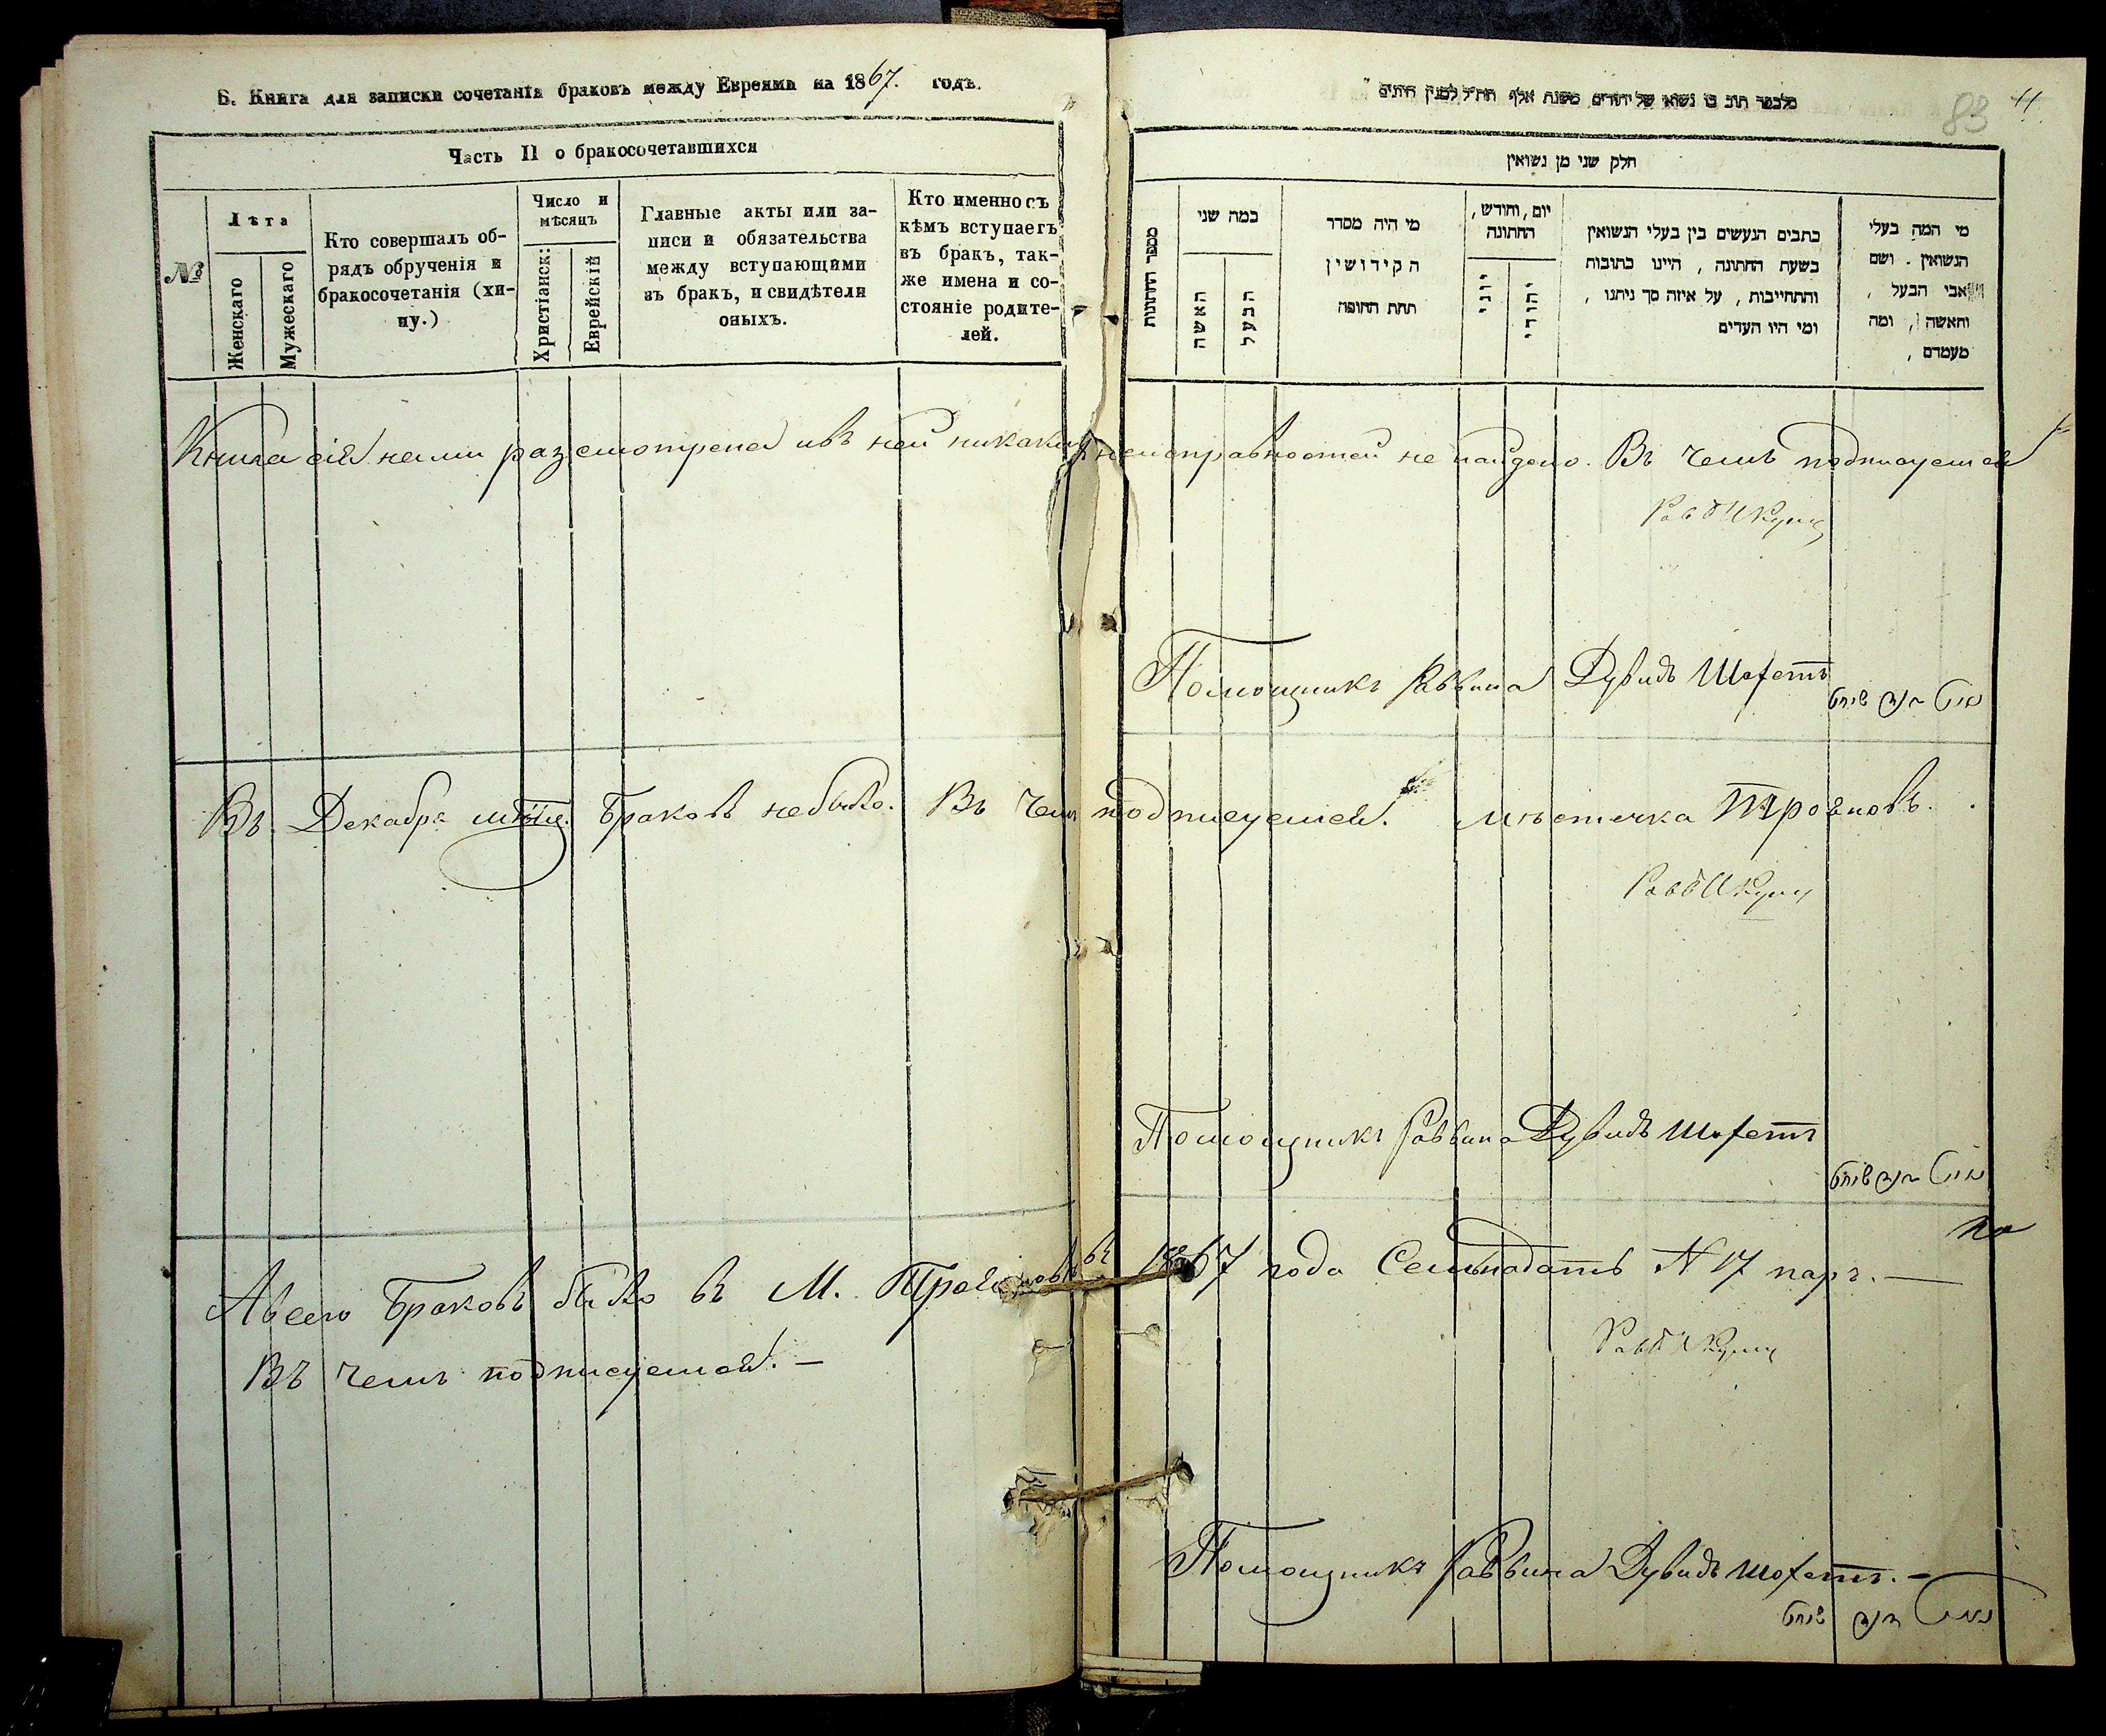 Б. Книга для записки сочетанія браковъ между Евреями на 1867. годъ.
Часть II о бракосочетавшихся
№
Лѣта
Женскаго
Мужескаго
Кто совершалъ об-
рядъ обрученія и
бракосочетанія (хи-
пу.)
Число и
мѣсяцъ
Христіанск:
Еврейскій
Главные акты или за-
писи и обязательства
между вступающими
въ бракъ, и свидѣтели
оныхъ.
Кто именно съ
кѣмъ вступаетъ
въ бракъ, так-
же имена и со-
стояніе родите-
лей.
83 11
חלק שני מן נשואין
מספר החתונות
כמה שני
האשה
הבעל
מי היה מסדר
הקידושין
תחת החופה
יום, וחודש,
החתונה
יוני
יהודי
כתבים הנעשים בין בעלי הנשואין
בשעת החתונה , היינו כתובות
והתחייבות , על איזה סך ניתנו ,
ומי היו העדים
מי המה בעלי
הנשואין . ושם
אבי הבעל ,
והאשה , ומה
מעמדם ,
Книга сія нами разсмотрена ивъ ней никакихъ неисправностей не найдено. Въ чемъ подписуемся
Помощникъ Раввина Дувидъ Шохетъ
שוחט
Въ Декабрѣ мѣсяцѣ Браковъ небыло. Въ чемъ подписуемся. Мѣстечка Трояновъ.
Помощникъ Раввина Дувидъ Шохетъ
שוחט
Авсего Браковъ было въ М. Трояновѣ въ 1867 года Семьнадать N 17 паръ. —
Въ чемъ подписуемся. —
Помощникъ Раввина Дувидъ Шохетъ. —
שוחט